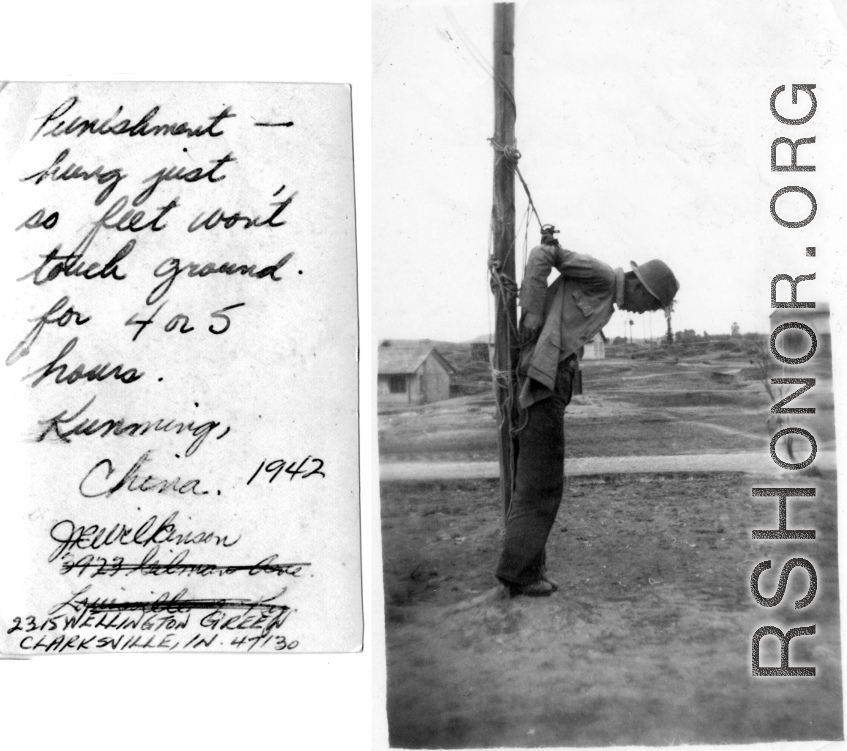 Punishment —
hung just
so feet won't
touch ground.
for 4 or 5
hours.
Kunming,
China. 1942
JEWilkinson
3923 Gilman Ave.
Louisville, Ky.
2315 WELLINGTON GREEN
CLARKSVILLE, IN. 47130
RSHONOR.ORG